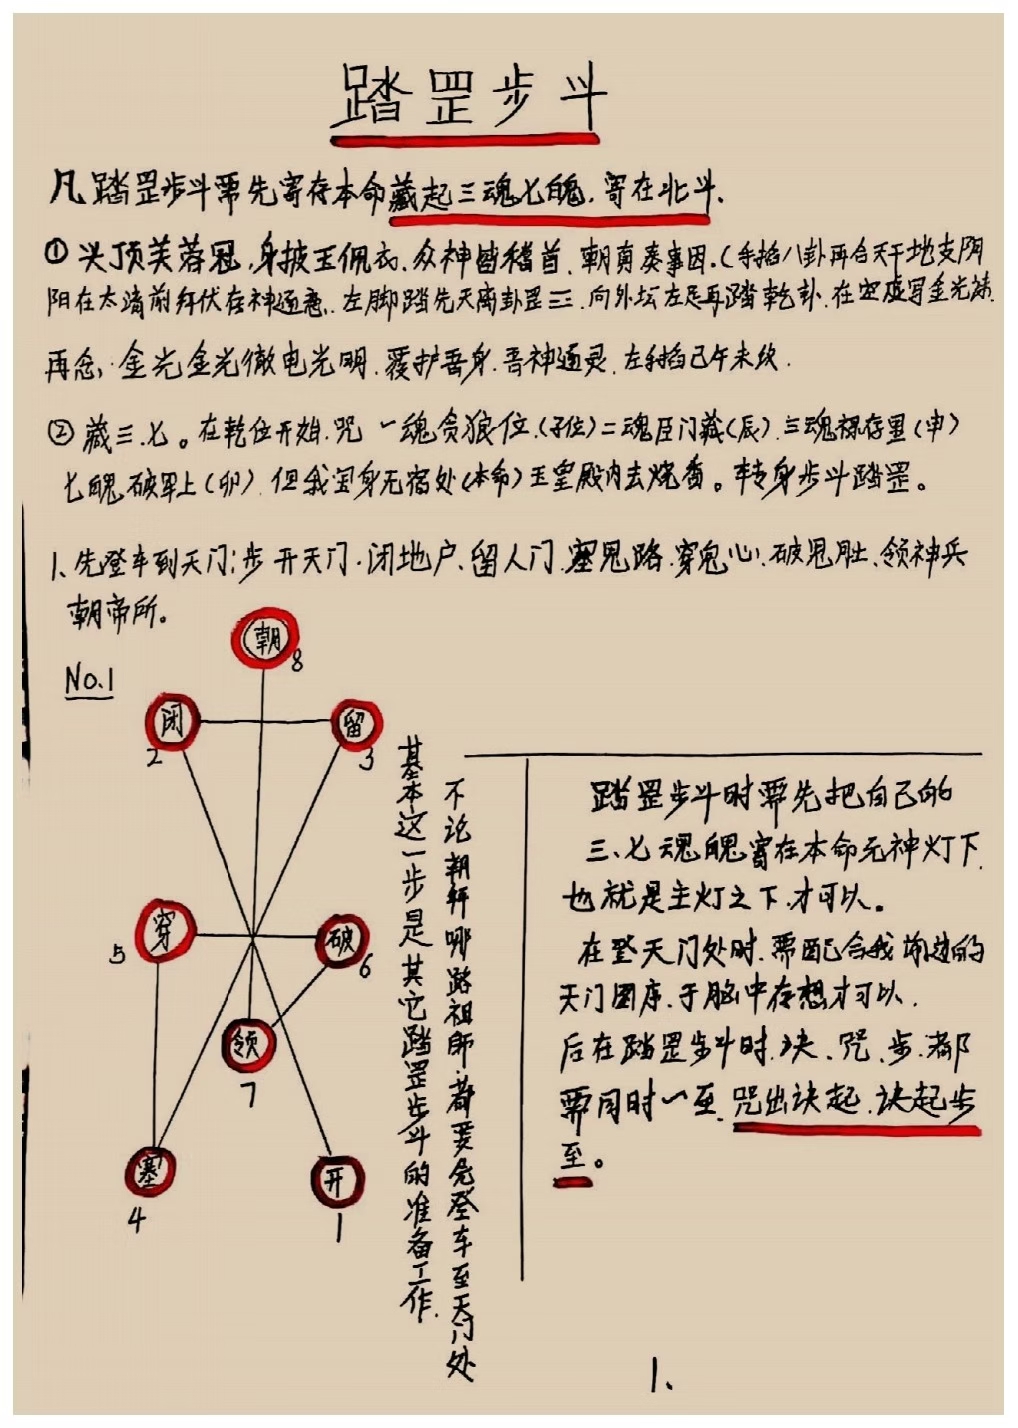 踏罡步斗
凡踏罡步斗需先寄存本命藏起三魂七魄.寄在北斗.
① 头顶芙蓉冠.身披玉佩衣.众神皆稽首.朝真奏事因.(手掐八卦再合天干地支阴
阳在太清前拜伏存神通意.左脚踏先天离卦罡三.向外坛左足再踏乾卦.在空虚写金光
再念:金光金光徹电光明.覆护吾身.吾神通灵.左手掐己午未纹.
② 藏三.七。在乾位开始.咒 一魂贪狼位.(子位)二魂巨门藏(辰).三魂禄存里(申)
七魄破军上(卯).但我宝身无宿处(本命)玉皇殿内去烧香。转身步斗踏罡。
1、先登车到天门:步 开天门.闭地户、留人门.塞鬼路.穿鬼心.破鬼肚、领神兵
朝帝所。
No.1
朝
8
闭
2
留
3
穿
5
破
6
领
7
塞
4
开
1
不论朝拜哪路祖师.都要先登车至天门处
基本这一步是其它踏罡步斗的准备工作.
踏罡步斗时需先把自己的
三、七魂魄寄在本命元神灯下.
也就是主灯之下.才可以。
在登天门处时.需配合我 的
天门图序.于脑中存想才可以.
后在踏罡步斗时.决、咒、步.都
需同时一至.咒出诀起.诀起步
至。
1、